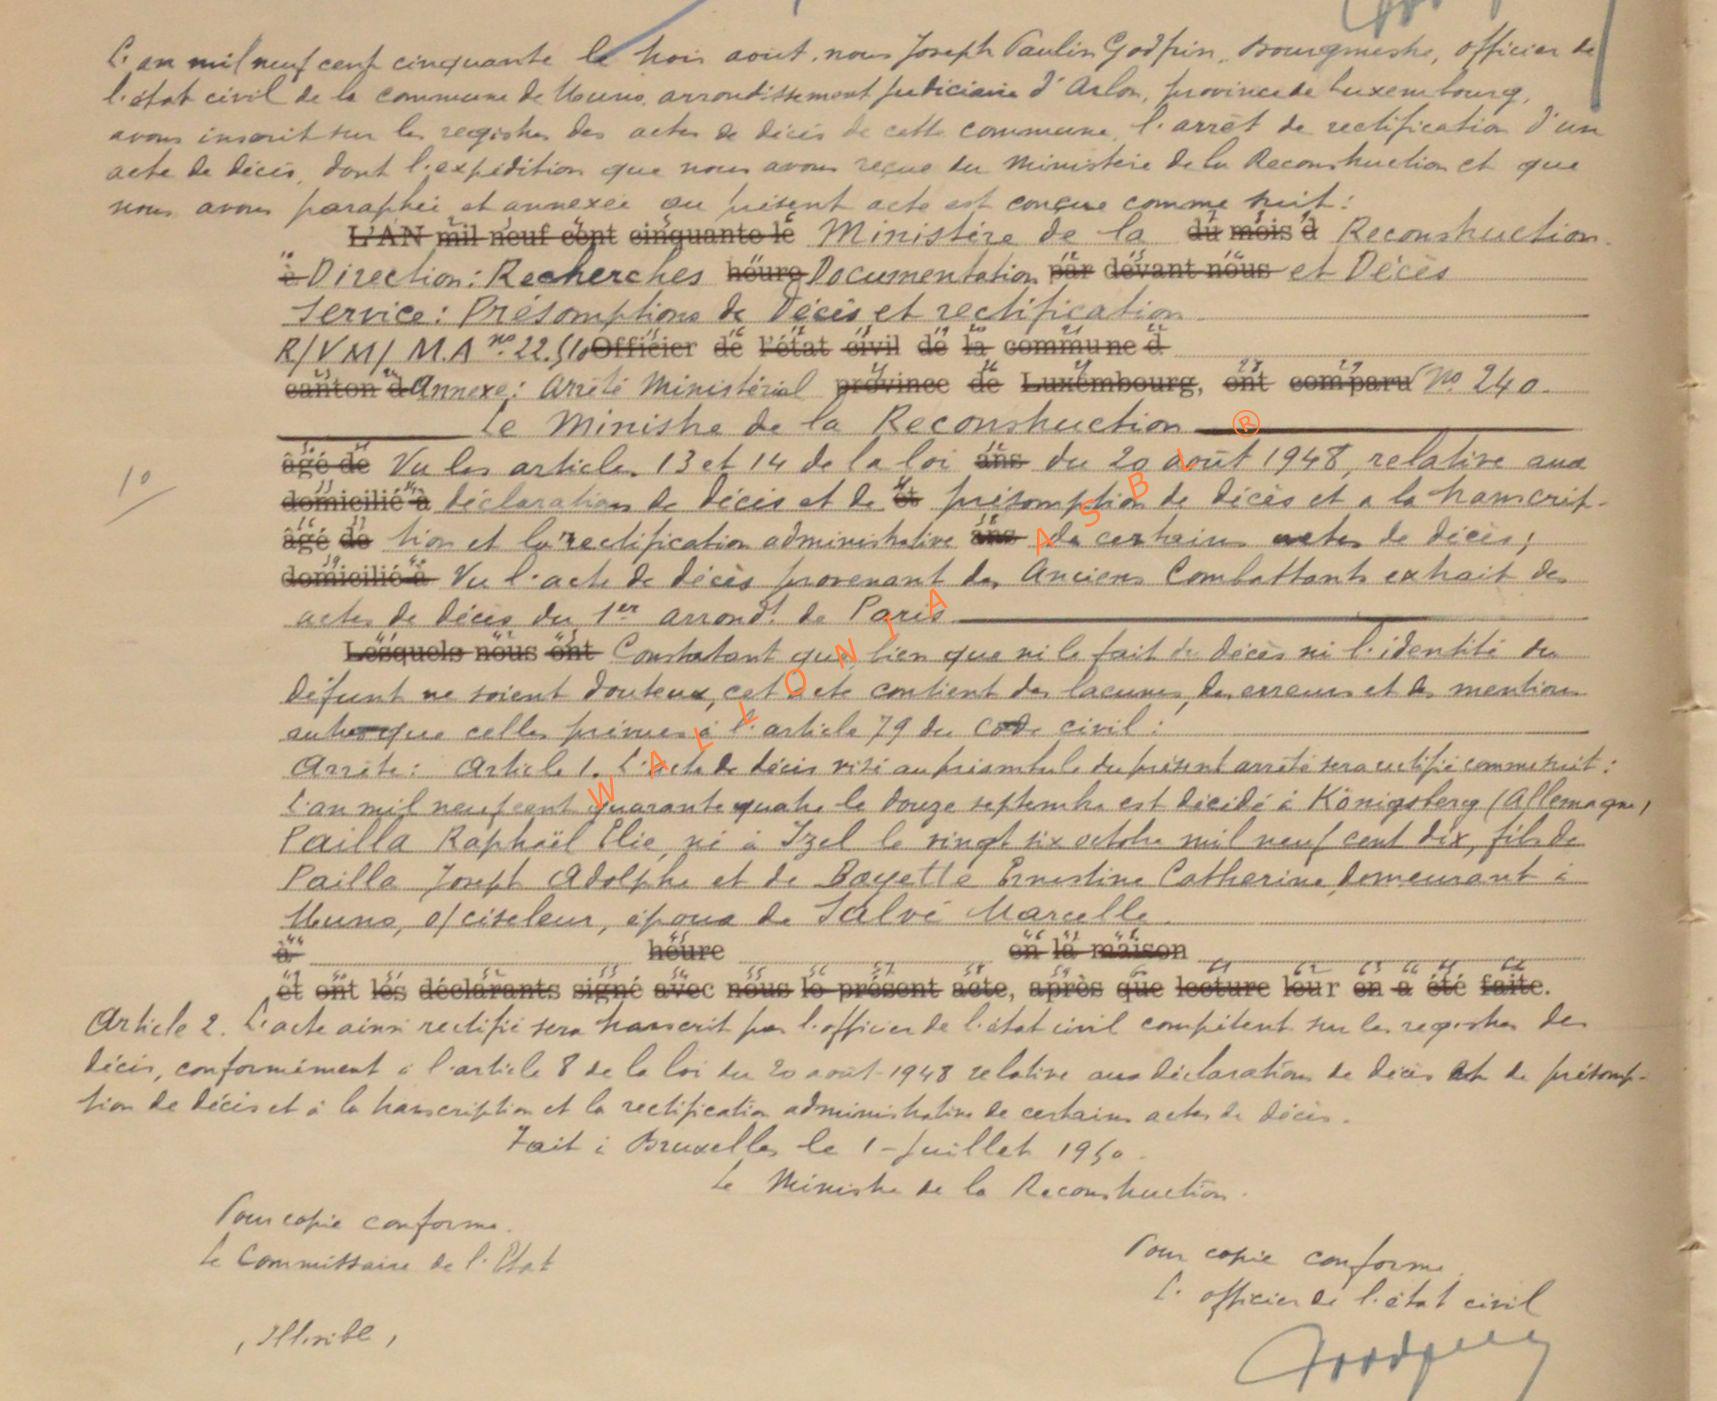 L'an mil neuf cent cinquante le trois aout, nous Joseph Paulin Godfrin, Bourgmestre, officier de
l'état civil de la commune de Muno, arrondissement judiciaire d'Arlon, province de Luxembourg,
avons inscrit sur les registres des actes de décès de cette commune, l'arrêt de rectification d'un
acte de décès, dont l'expédition que nous avons reçue du Ministère de la Reconstruction et que
nous avons paraphée et annexée au présent acte est conçue comme suit :
L'AN mil neuf cent cinquante le Ministère de la du mois d Reconstruction.
à Direction : Recherches heure Documentation par devant nous et Décès
Service : Présomptions de Décès et rectification
R/VM/ M.A no. 22.510 Officier de l'état civil de la commune d
canton d Annexe : Arrêté Ministériel province de Luxembourg, ont comparu no 240.
Le Ministre de la Reconstruction ®
âgé de Vu les articles 13 et 14 de la loi ans du 20 août 1948, relative aux
domicilié à déclarations de décès et de et présomption de décès et a la transcrip-
âgé de tion et la rectification administrative ans de certains actes de décès ;
domicilié à Vu l'acte de décès provenant des Anciens Combattants extrait des
actes de décès du 1er arrondt. de Paris
Lesquels nous ont Constatant que bien que ni le fait de décès ni l'identité du
défunt ne soient douteux, cet acte contient des lacunes, des erreurs et des mentions
autres que celles prévues à l'article 79 du Code civil :
Arrête : Article 1. L'acte de décès visé au préambule du présent arrêté sera rectifié comme suit :
L'an mil neuf cent quarante quatre le douze septembre est décédé à Königsberg (Allemagne)
Pailla Raphaël Elie, né à Izel le vingt six octobre mil neuf cent dix, fils de
Pailla Joseph Adolphe et de Bayette Ernestine Catherine, demeurant à
Muno, o/ciseleur, époux de Salvé Marcelle.
à heure en la maison
et ont les déclarants signé avec nous le présent acte, après que lecture leur en a été faite.
Article 2. L'acte ainsi rectifié sera transcrit par l'officier de l'état civil compétent sur les registres des
décès, conformément à l'article 8 de la loi du 20 août 1948 relative aux déclarations de décès et de présomp-
tion de décès et à la transcription et la rectification administrative de certains actes de décès.
Fait à Bruxelles le 1 - Juillet 1950.
Le Ministre de la Reconstruction.
Pour copie conforme.
Le Commissaire de l'Etat
(Illisible)
Pour copie conforme.
L'officier de l'état civil
Godfrin
WALLONIA ASBL